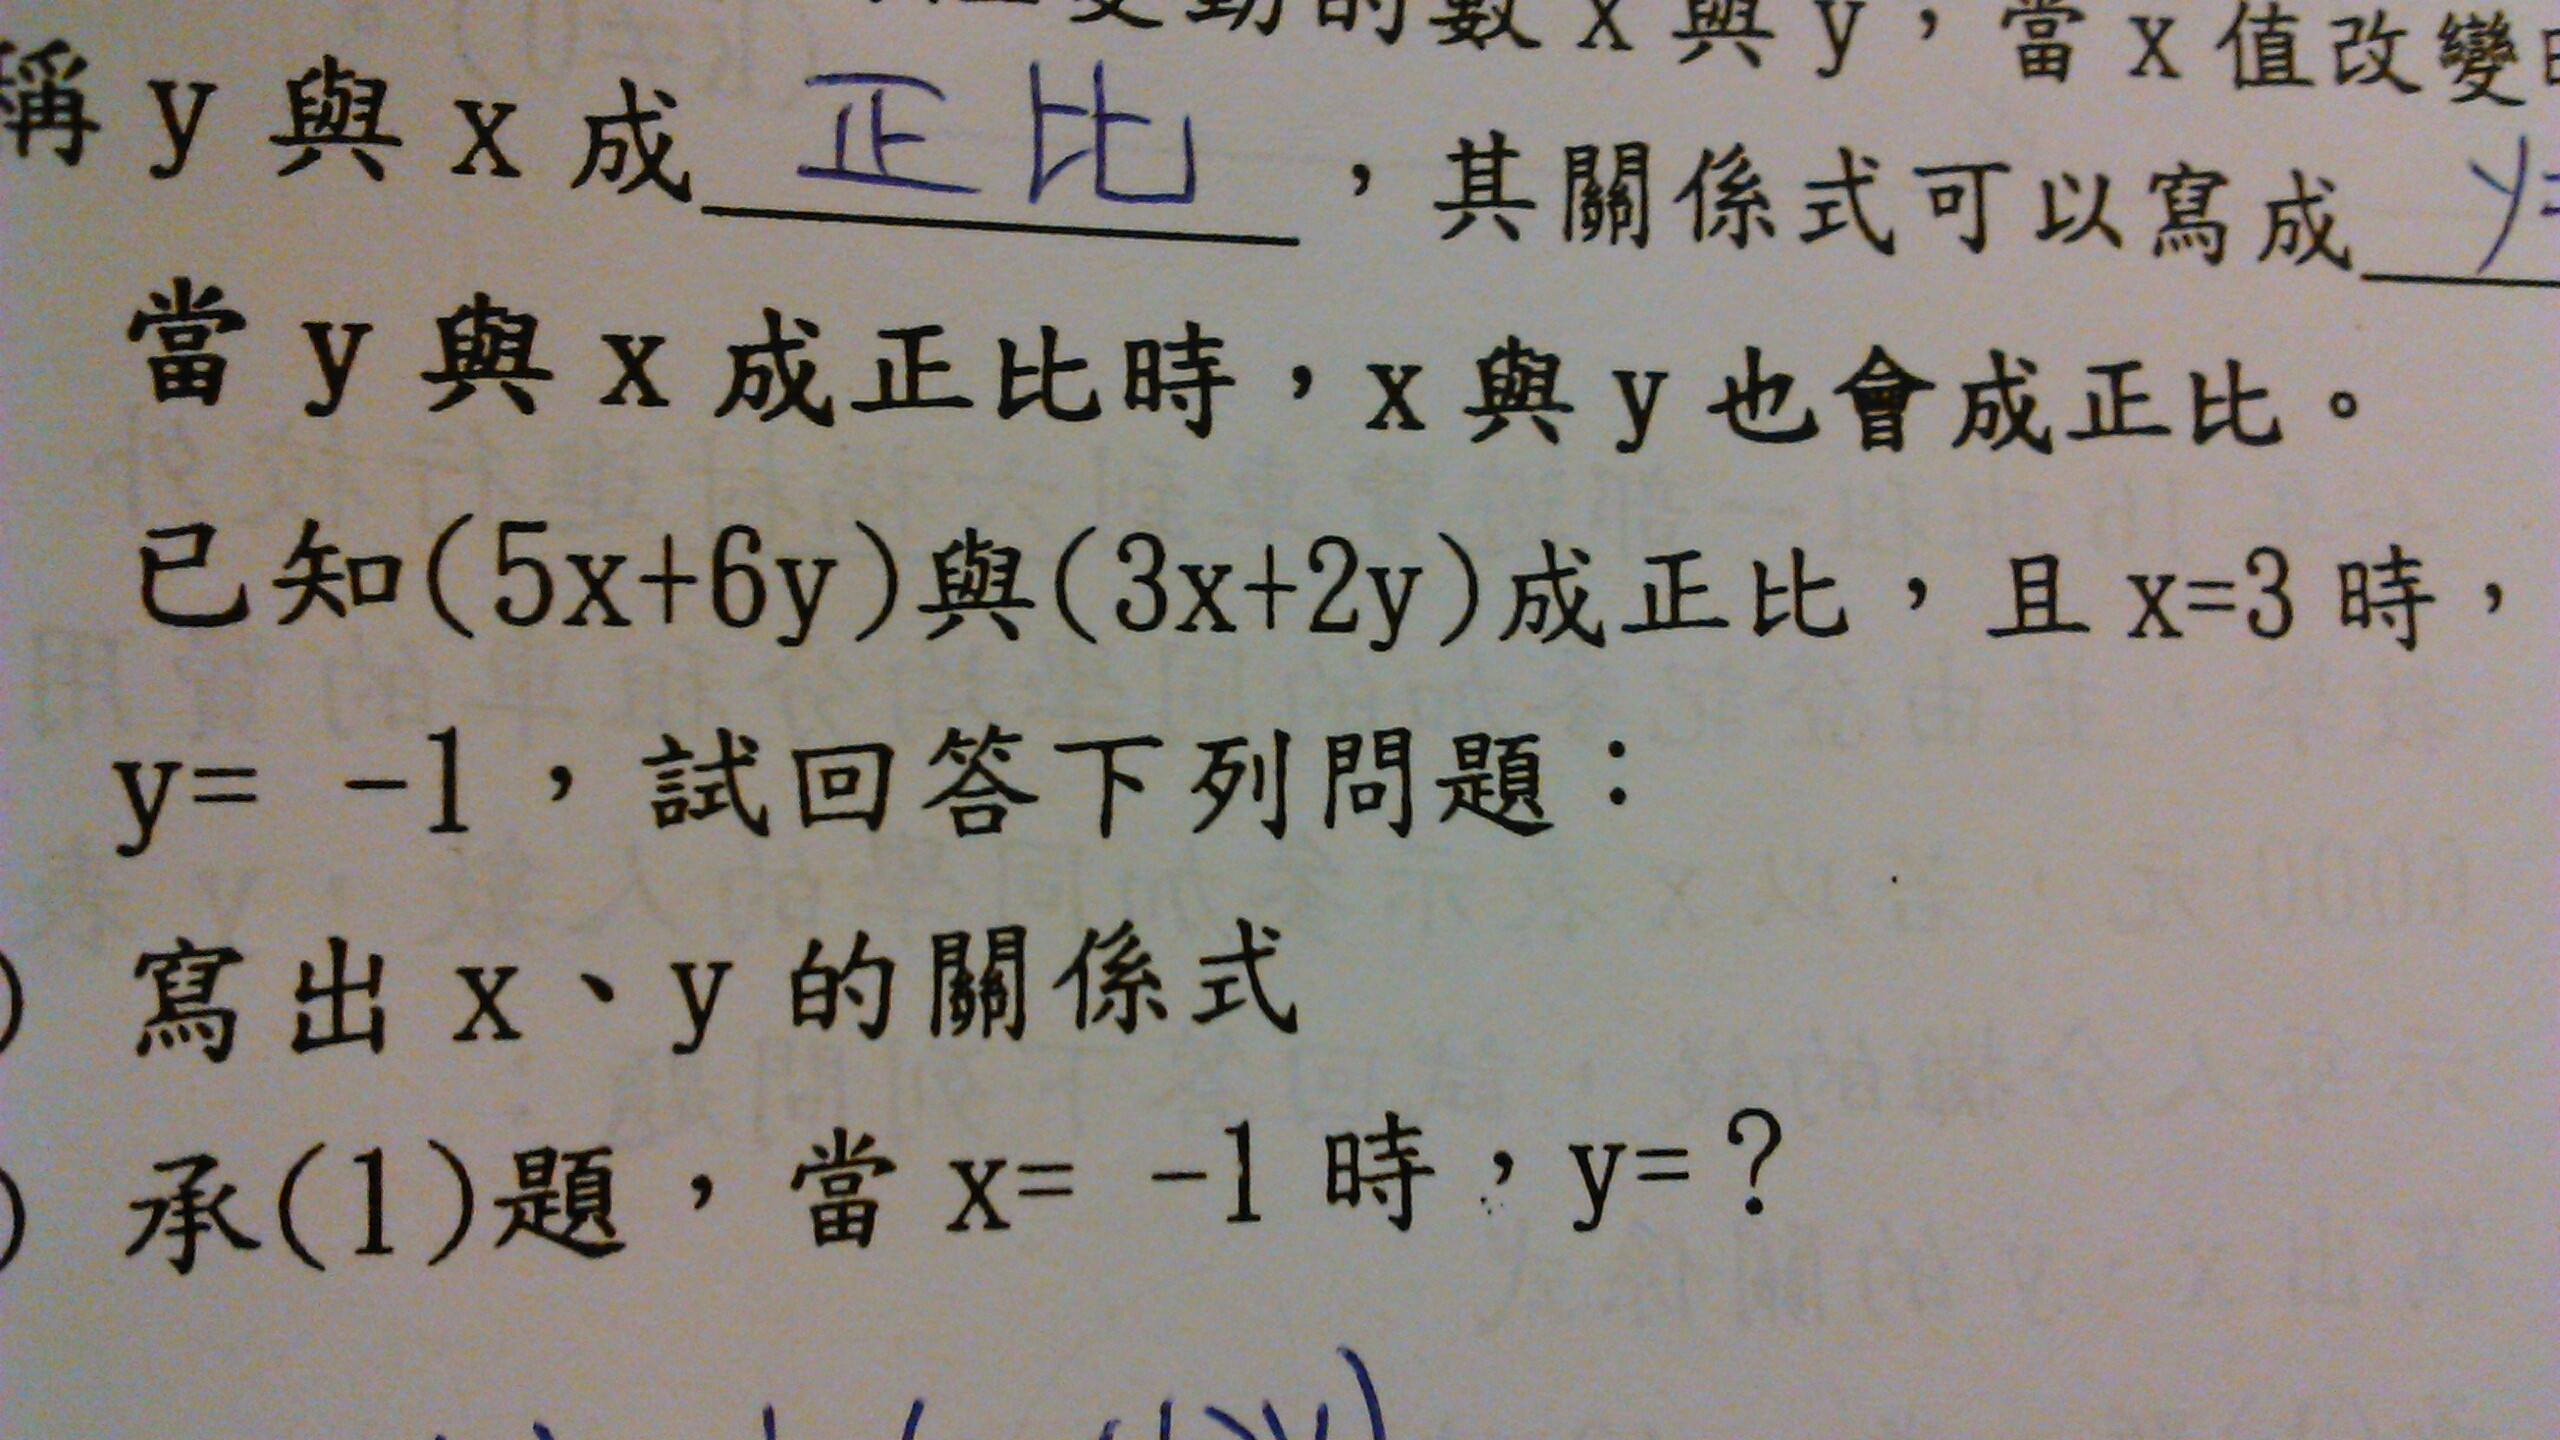 變動的數 x 與 y，當 x 值改變
稱 y 與 x 成 正比 ，其關係式可以寫成 y=
當 y 與 x 成正比時，x 與 y 也會成正比。
已知(5x+6y)與(3x+2y)成正比，且 x=3 時，
y= -1，試回答下列問題：
寫出 x、y 的關係式
承(1)題，當 x= -1 時，y=？